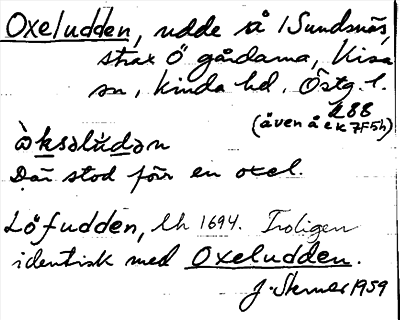 Oxeludden, udde å /Sundsnäs,
strax Ö gårdarna, Kisa
sn, Kinda hd, Östg. l.
R88
(även å ek 7F5h)
ὰksəlúdən
Där stod förr en oxel.
Löfudden, lh 1694. Troligen
identisk med Oxeludden.
J. 1959